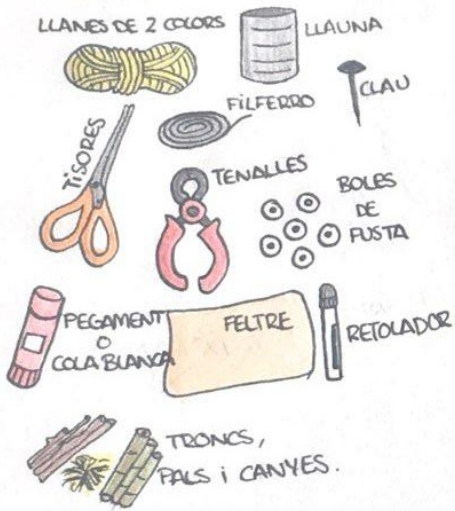 LLANES DE 2 COLORS
LLAUNA
CLAU
FILFERRO
TISORES
TENALLES
BOLES
DE
FUSTA
PEGAMENT
O
COLA BLANCA
FELTRE
RETOLADOR
TRONCS,
PALS i CANYES.